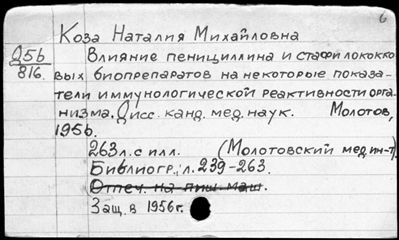 6
Коза Наталия Михайловна
Д56
816.
Влияние пенициллина и стафилококко-
вых биопрепаратов на некоторые показа-
тели иммунологической реактивности орга-
низма. Дисс. канд. мед. наук. Молотов,
1956.
263 л. с илл. (Молотовский мед ин-т).
Библиогр.: л. 239-263.
Отпеч. на пиш. маш.
Защ. в 1956 г.